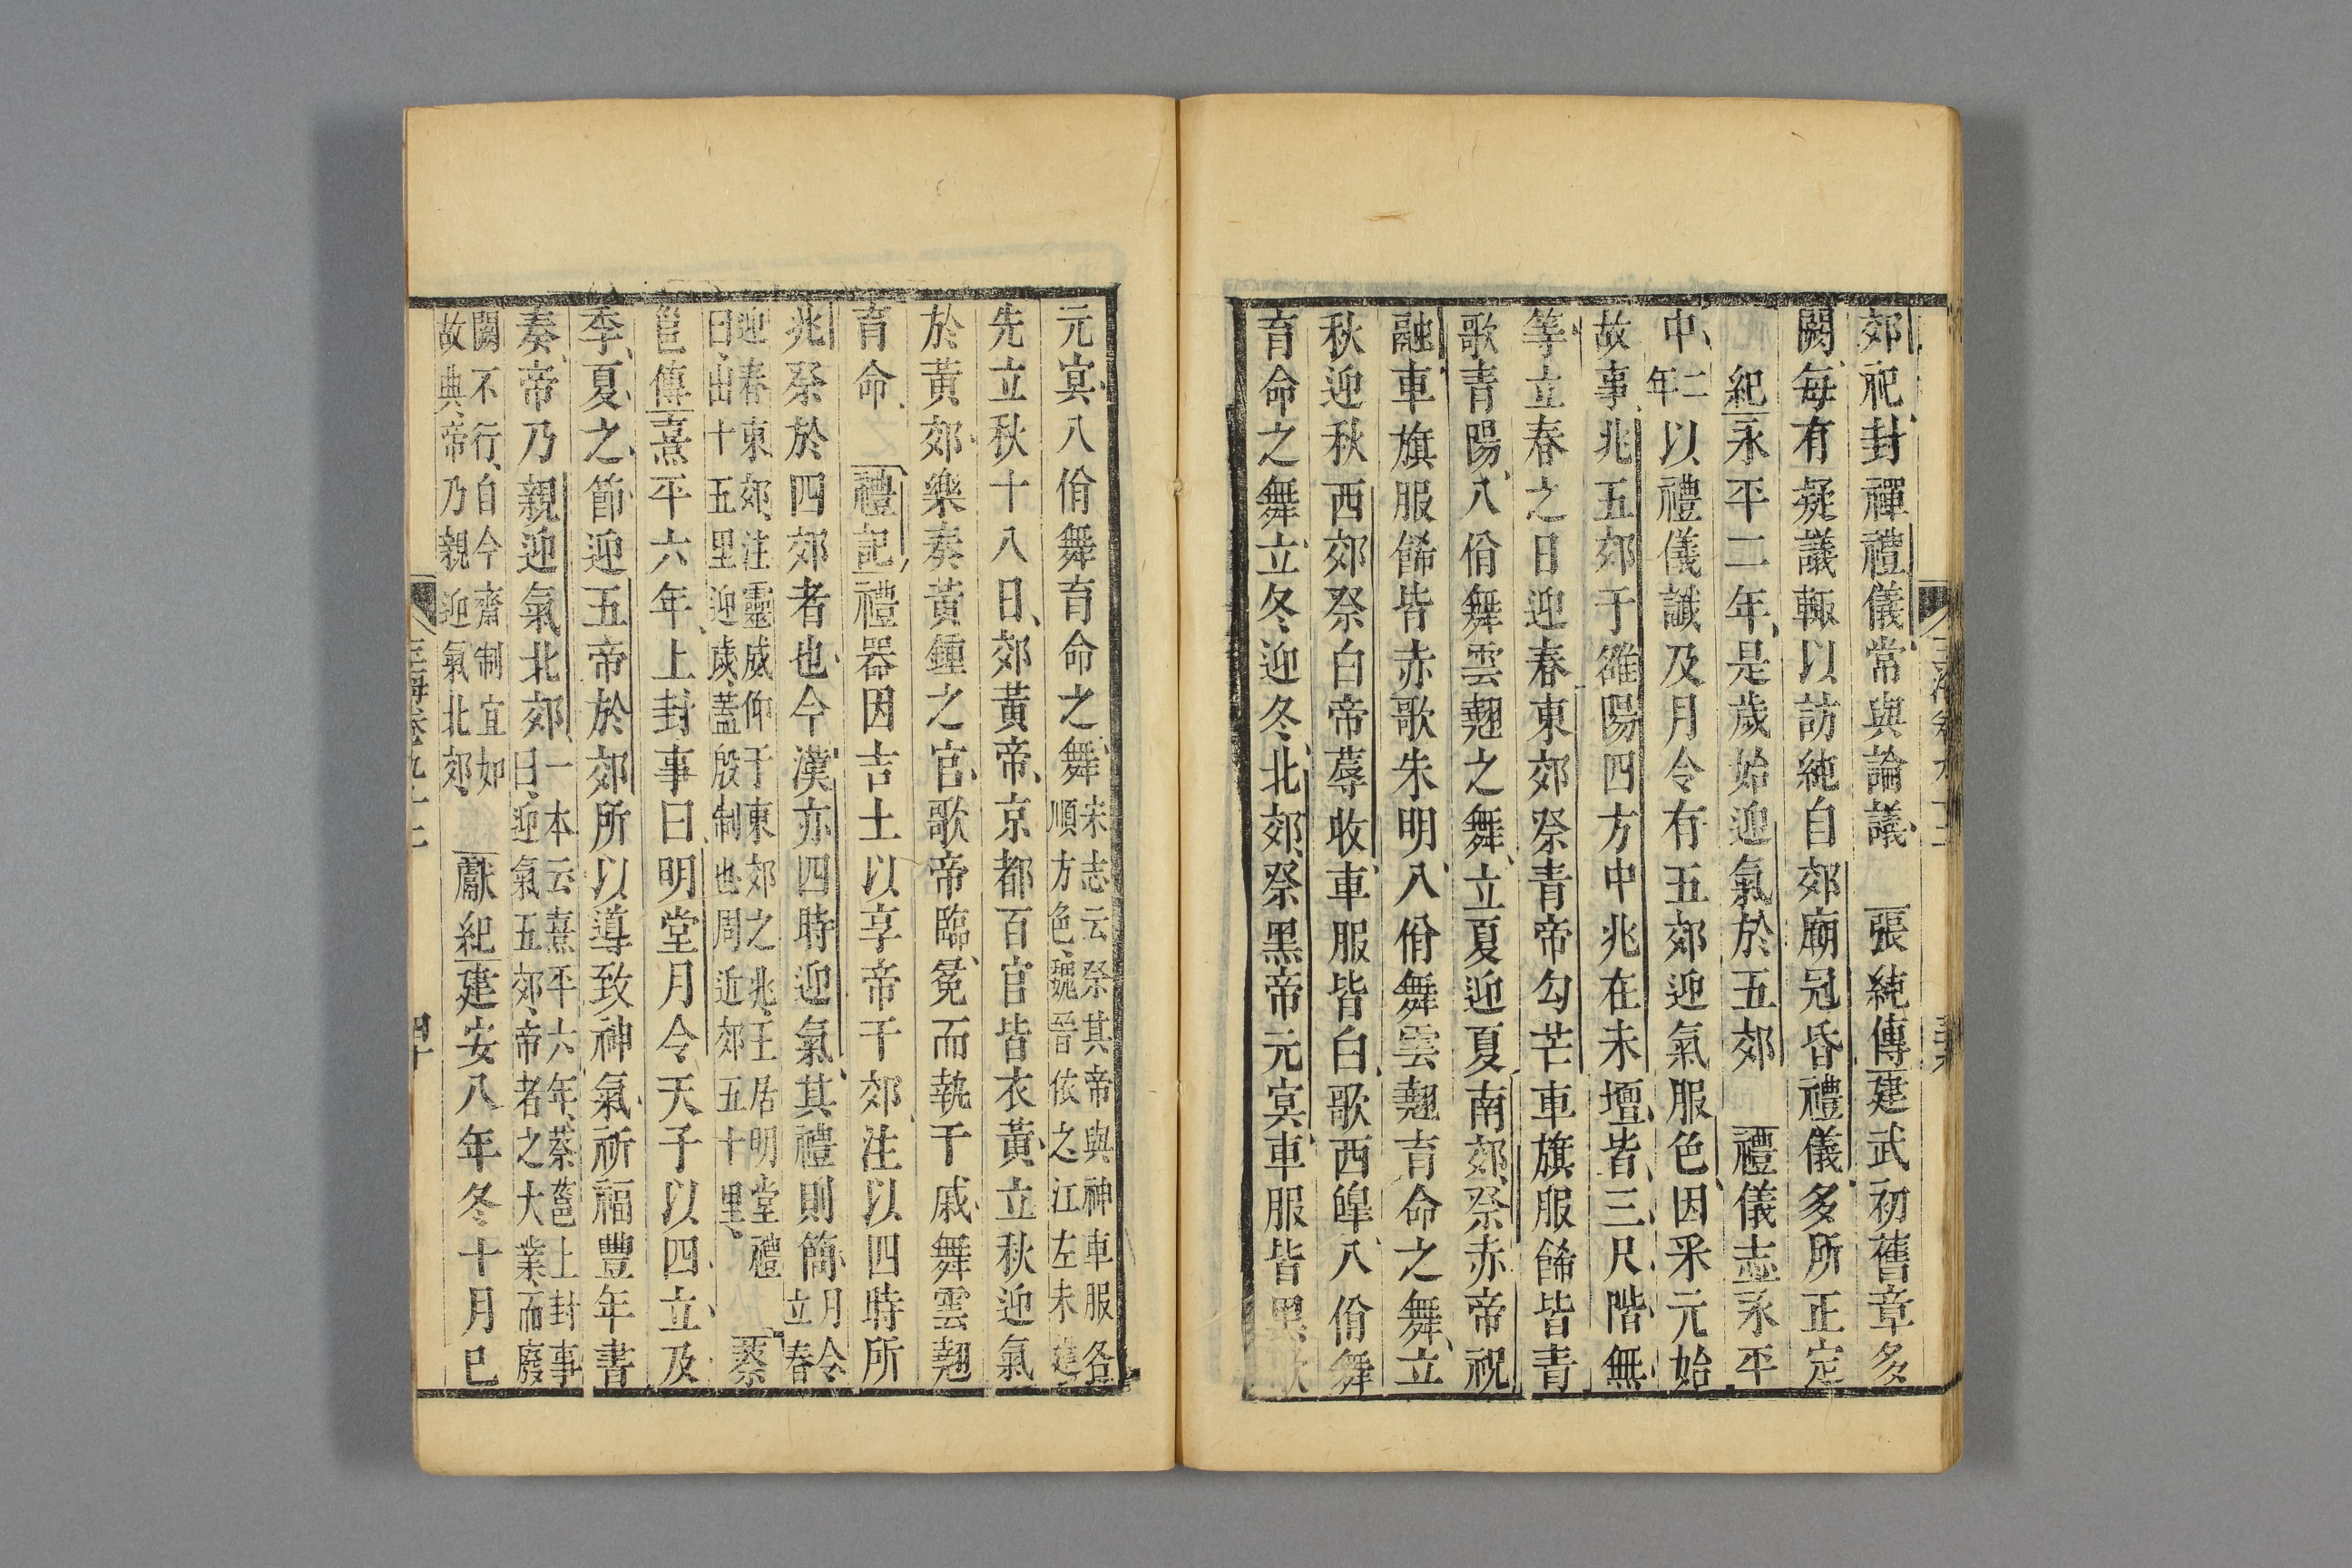 郊祀封禪禮儀常與論議　張純傳建武初舊章多
闕每有疑議輒以訪純自郊廟冠昏禮儀多所正定
紀永平二年是歲始迎氣於五郊　禮儀志永平
中二年以禮儀讖及月令有五郊迎氣服色因采元始
故事兆五郊于雒陽四方中兆在未壇皆三尺階無
等立春之日迎春東郊祭青帝勾芒車旗服飾皆青
歌青陽八佾舞雲翹之舞立夏迎夏南郊祭赤帝祝
融車旗服飾皆赤歌朱明八佾舞雲翹育命之舞立
秋迎秋西郊祭白帝蓐收車服皆白歌西皥八佾舞
育命之舞立冬迎冬北郊祭黑帝元冥車服皆黑歌
元冥八佾舞育命之舞宋志云祭其帝與神車服各順方色魏晉依之江左未建
先立秋十八日郊黃帝京都百官皆衣黃立秋迎氣
於黃郊樂奏黃鍾之宫歌帝臨冕而執干戚舞雲翹
育命　禮記禮器因吉土以享帝于郊注以四時所
兆祭於四郊者也今漢亦四時迎氣其禮則簡月令立春
迎春東郊注靈威仰于東郊之兆王居明堂禮曰出十五里迎歲蓋殷制也周近郊五十里　蔡
邕傳熹平六年上封事曰明堂月令天子以四立及
季夏之節迎五帝於郊所以導致神氣祈福豐年書
奏帝乃親迎氣北郊一本云熹平六年蔡邕上封事曰迎氣五郊帝者之大業而廢
闕不行自今齋制宜如故典帝乃親迎氣北郊　獻紀建安八年冬十月巳